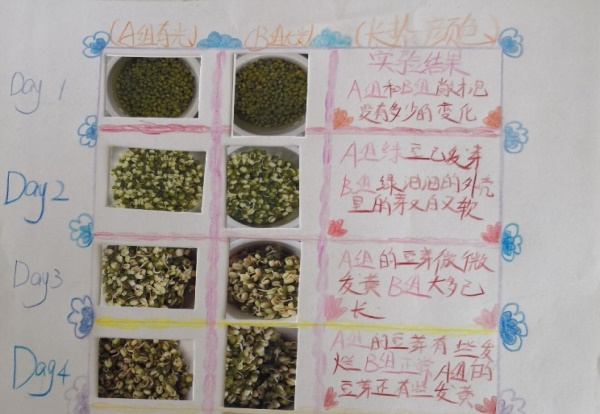 (A组有光) (B组无光) (长势、颜色)
Day 1
实验结果
A组和B组尚未记
没有多少的变化
Day 2
A组绿豆已发芽
B组绿油油的外壳
里的芽又白又软
Day3
A组的豆芽微微
发黄 B组大多已
长.
Day4
A组的豆芽有些发
烂 B组正常 A组的
豆芽还有些发黄